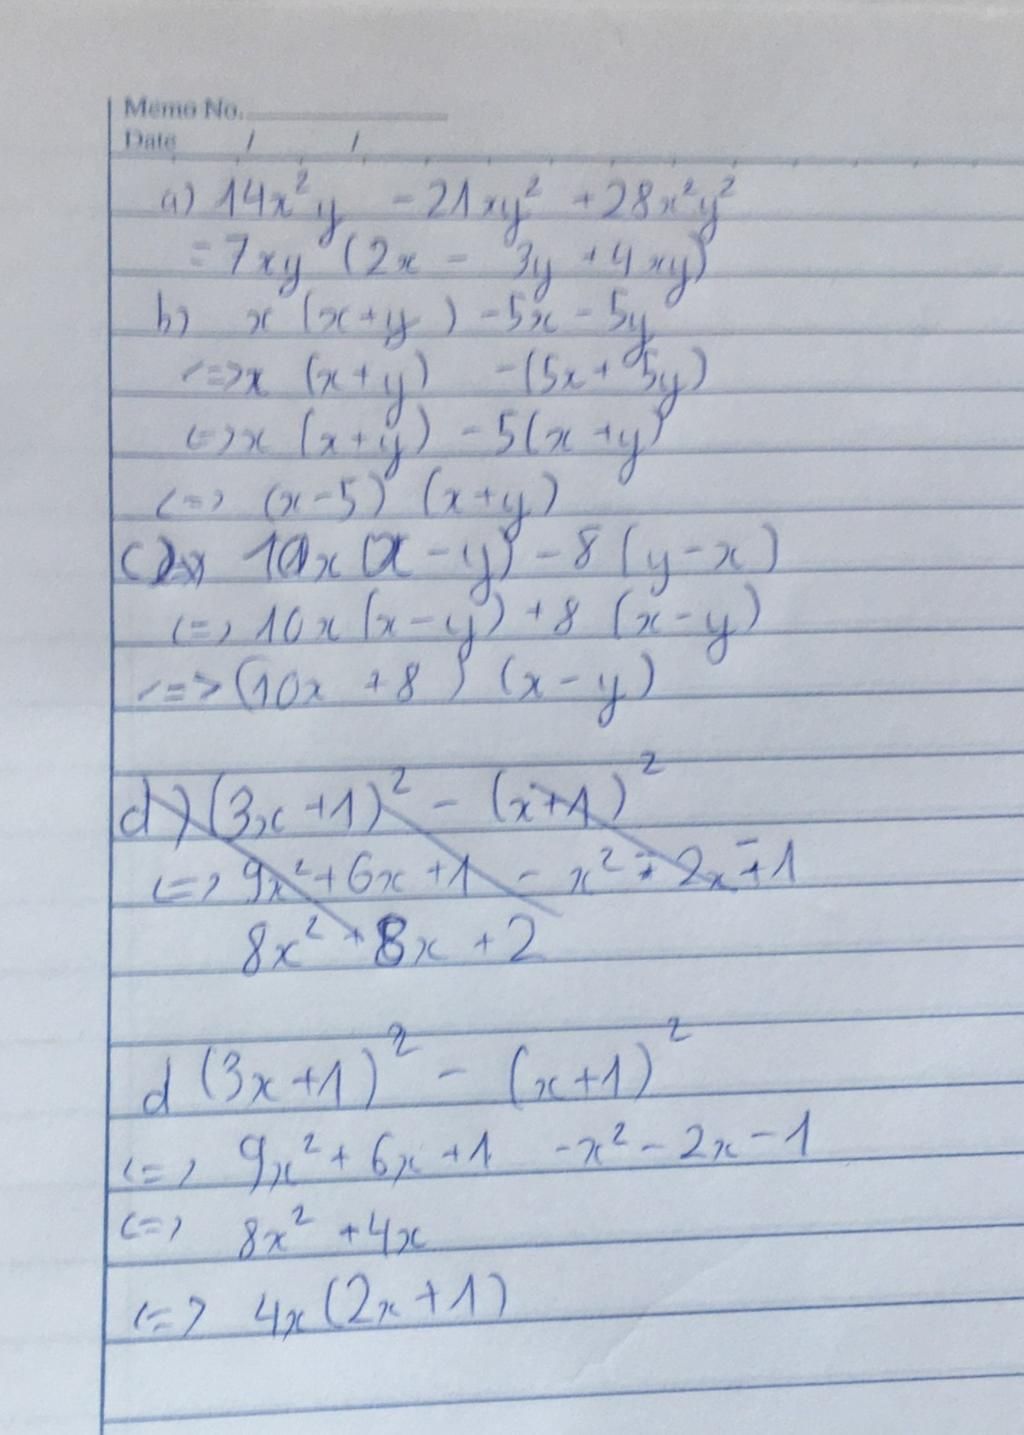 Memo No.
Date / /
a) 14x²y - 21xy² + 28x²y²
= 7xy (2x - 3y + 4xy)
b) x (x+y) - 5x - 5y
<=> x (x+y) - (5x + 5y)
<=> x (x+y) - 5(x+y)
<=> (x-5) (x+y)
c) 10x(x-y) - 8(y-x)
<=> 10x(x-y) + 8 (x-y)
<=> (10x + 8) (x-y)
d) (3x+1)² - (x+1)²
<=> 9x² + 6x + 1 - x² - 2x - 1
8x² + 8x + 2
d (3x+1)² - (x+1)²
<=> 9x² + 6x + 1 - x² - 2x - 1
<=> 8x² + 4x
<=> 4x(2x+1)